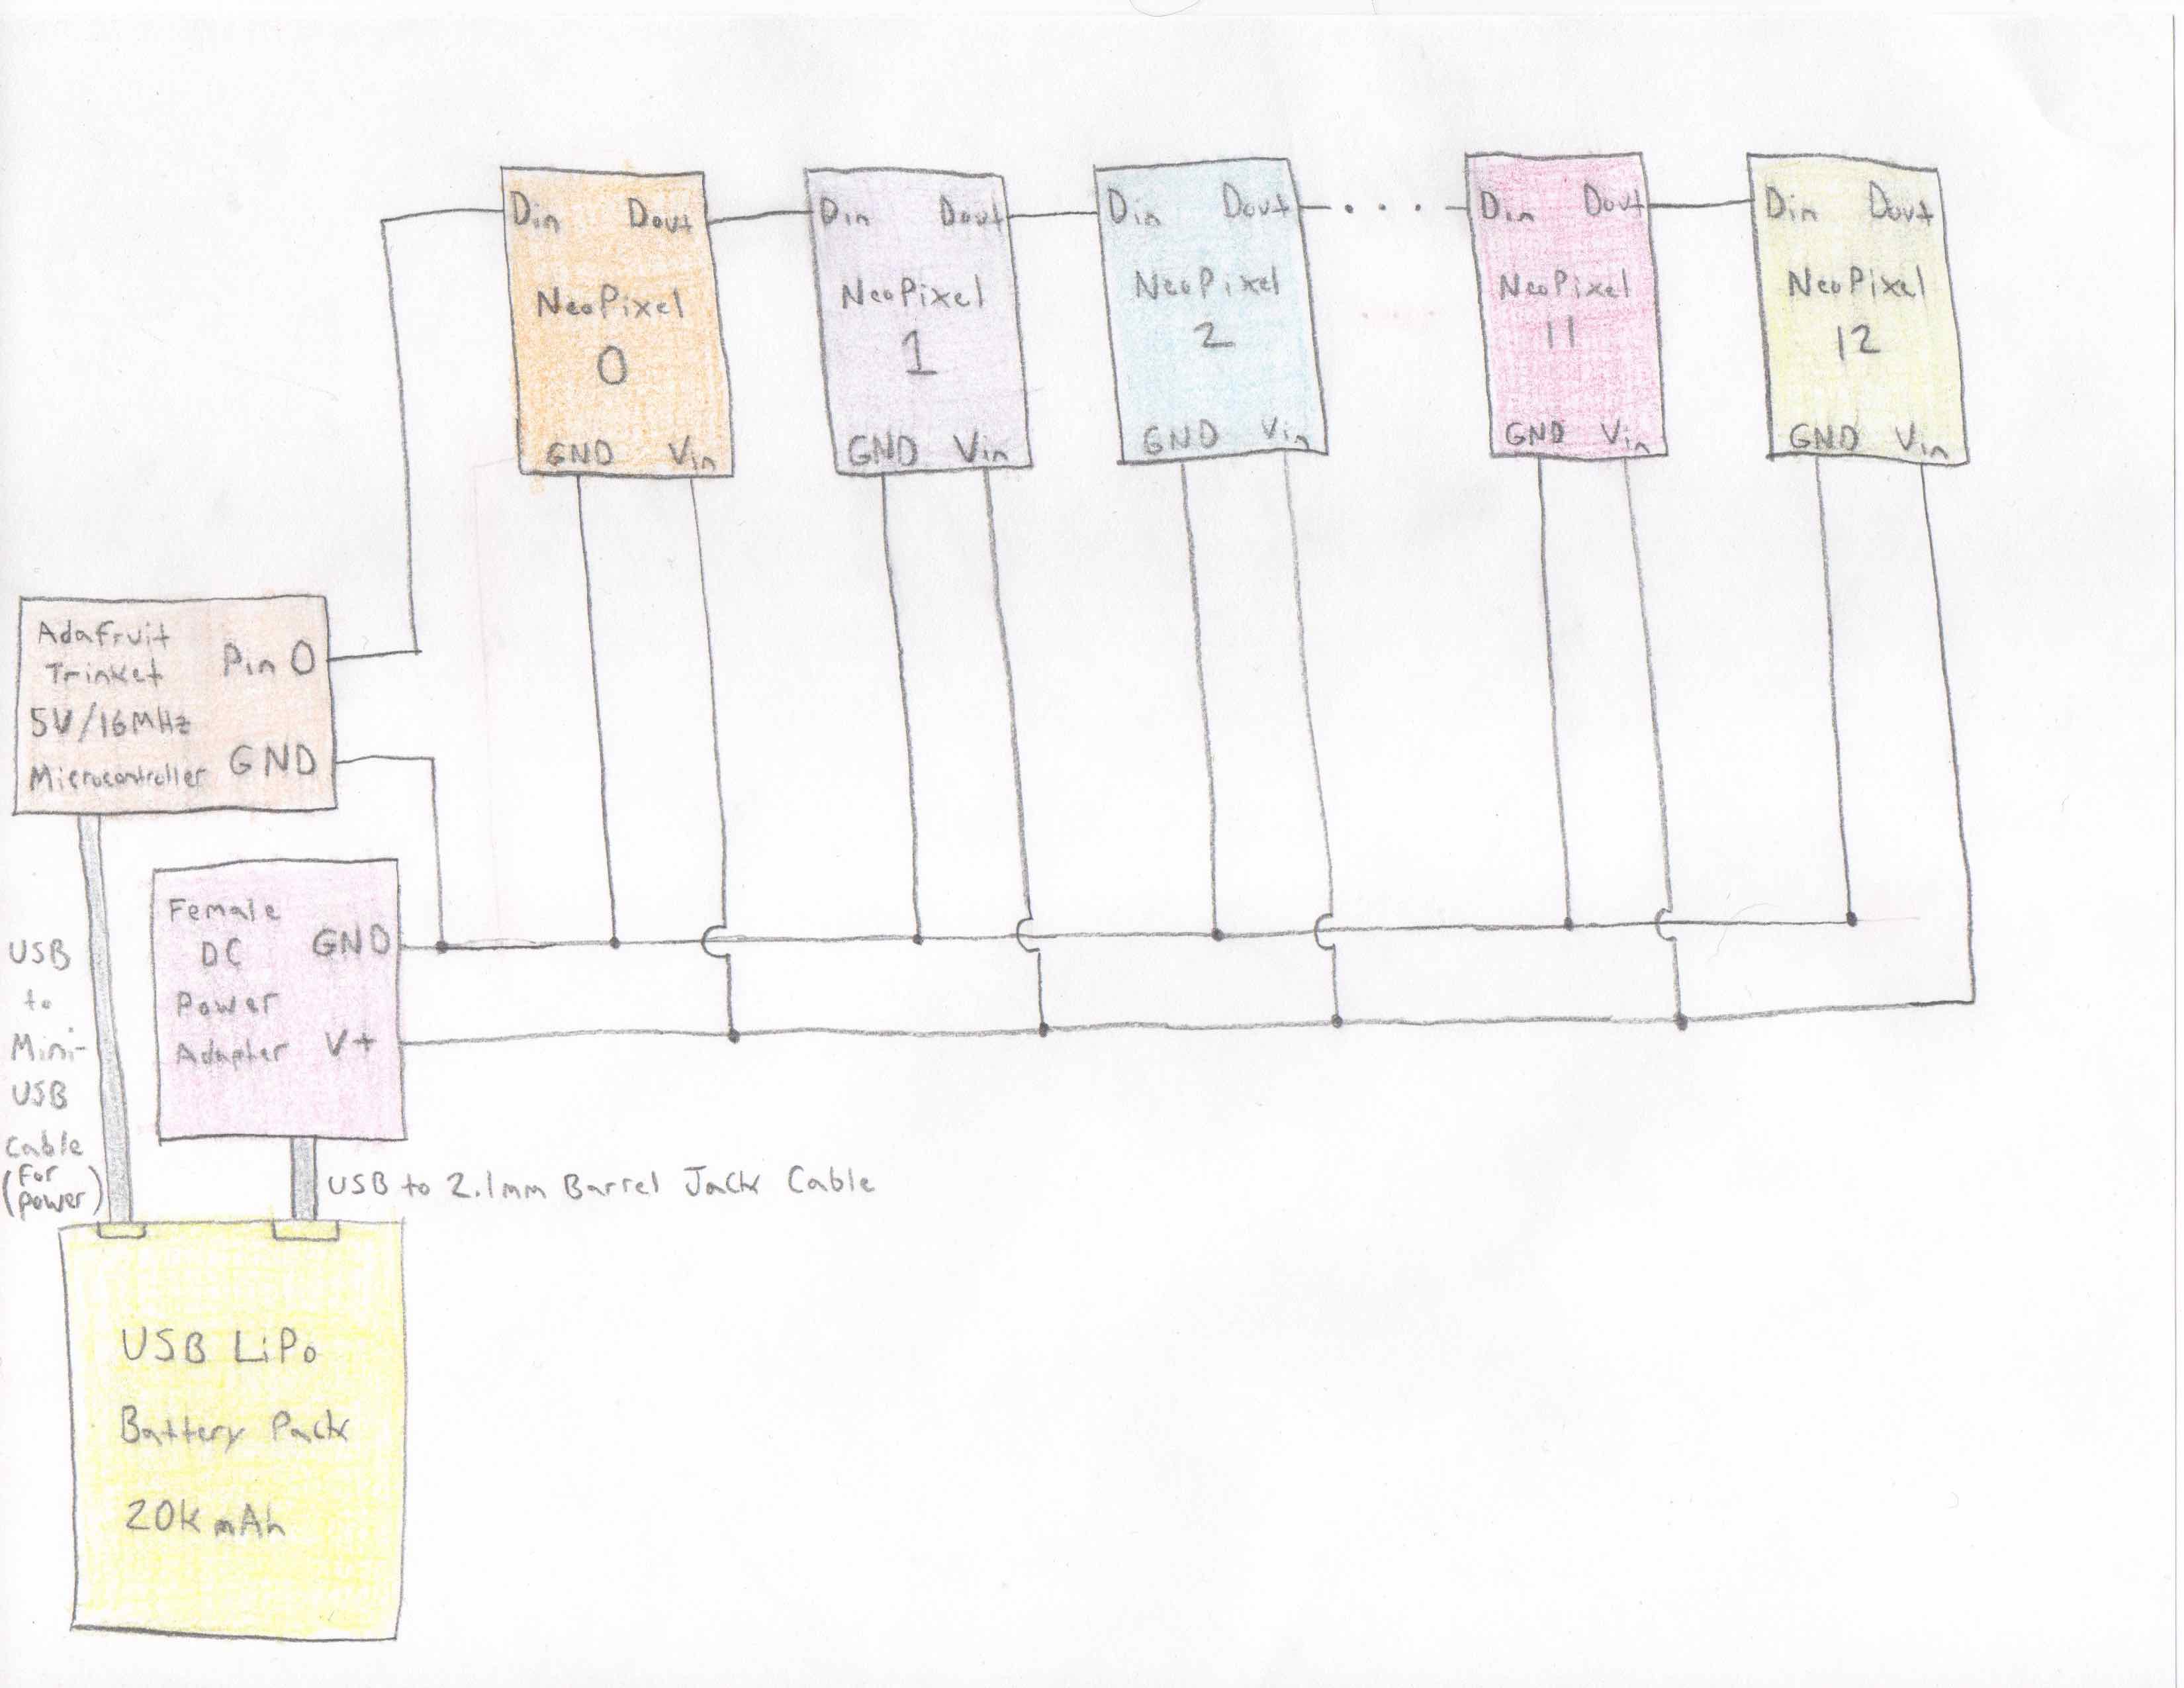 Din Dout
NeoPixel
0
GND Vin
Din Dout
NeoPixel
1
GND Vin
Din Dout
NeoPixel
2
GND Vin
Din Dout
NeoPixel
11
GND Vin
Din Dout
NeoPixel
12
GND Vin
Adafruit
Trinket
5V/16MHz
Microcontroller
Pin 0
GND
Female
DC
Power
Adapter
GND
V+
USB
to
Mini-
USB
Cable
(For
Power)
USB to 2.1mm Barrel Jack Cable
USB LiPo
Battery Pack
20k mAh